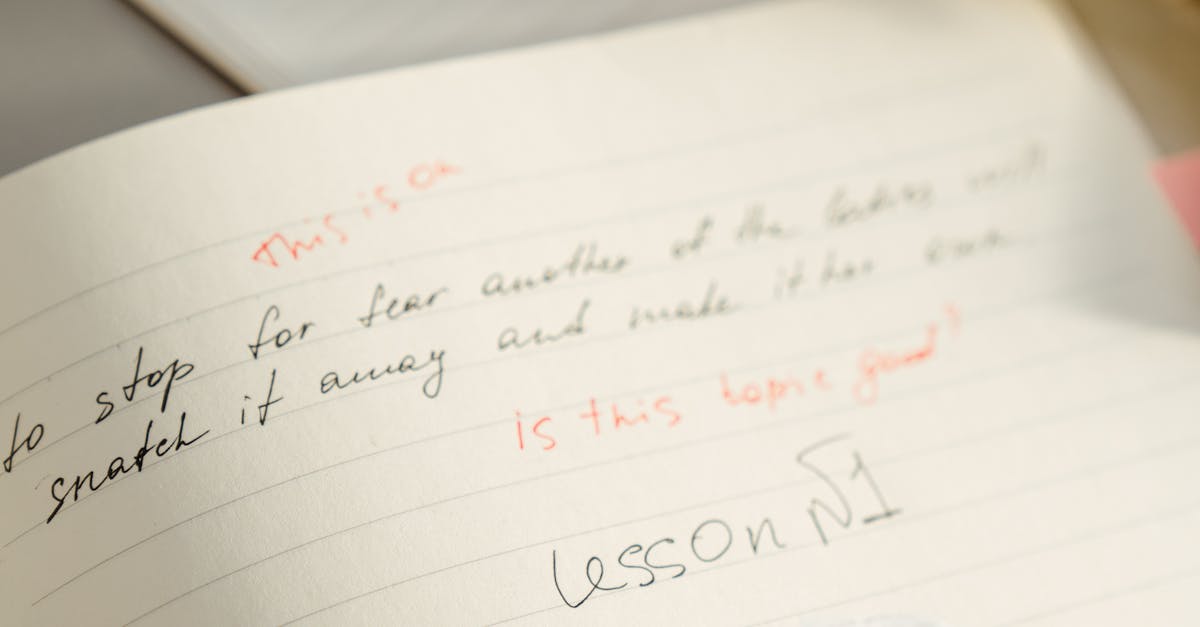 This is on
to stop for fear another of the ladies will
snatch it away and make it her own
is this topic good?
Lesson N1